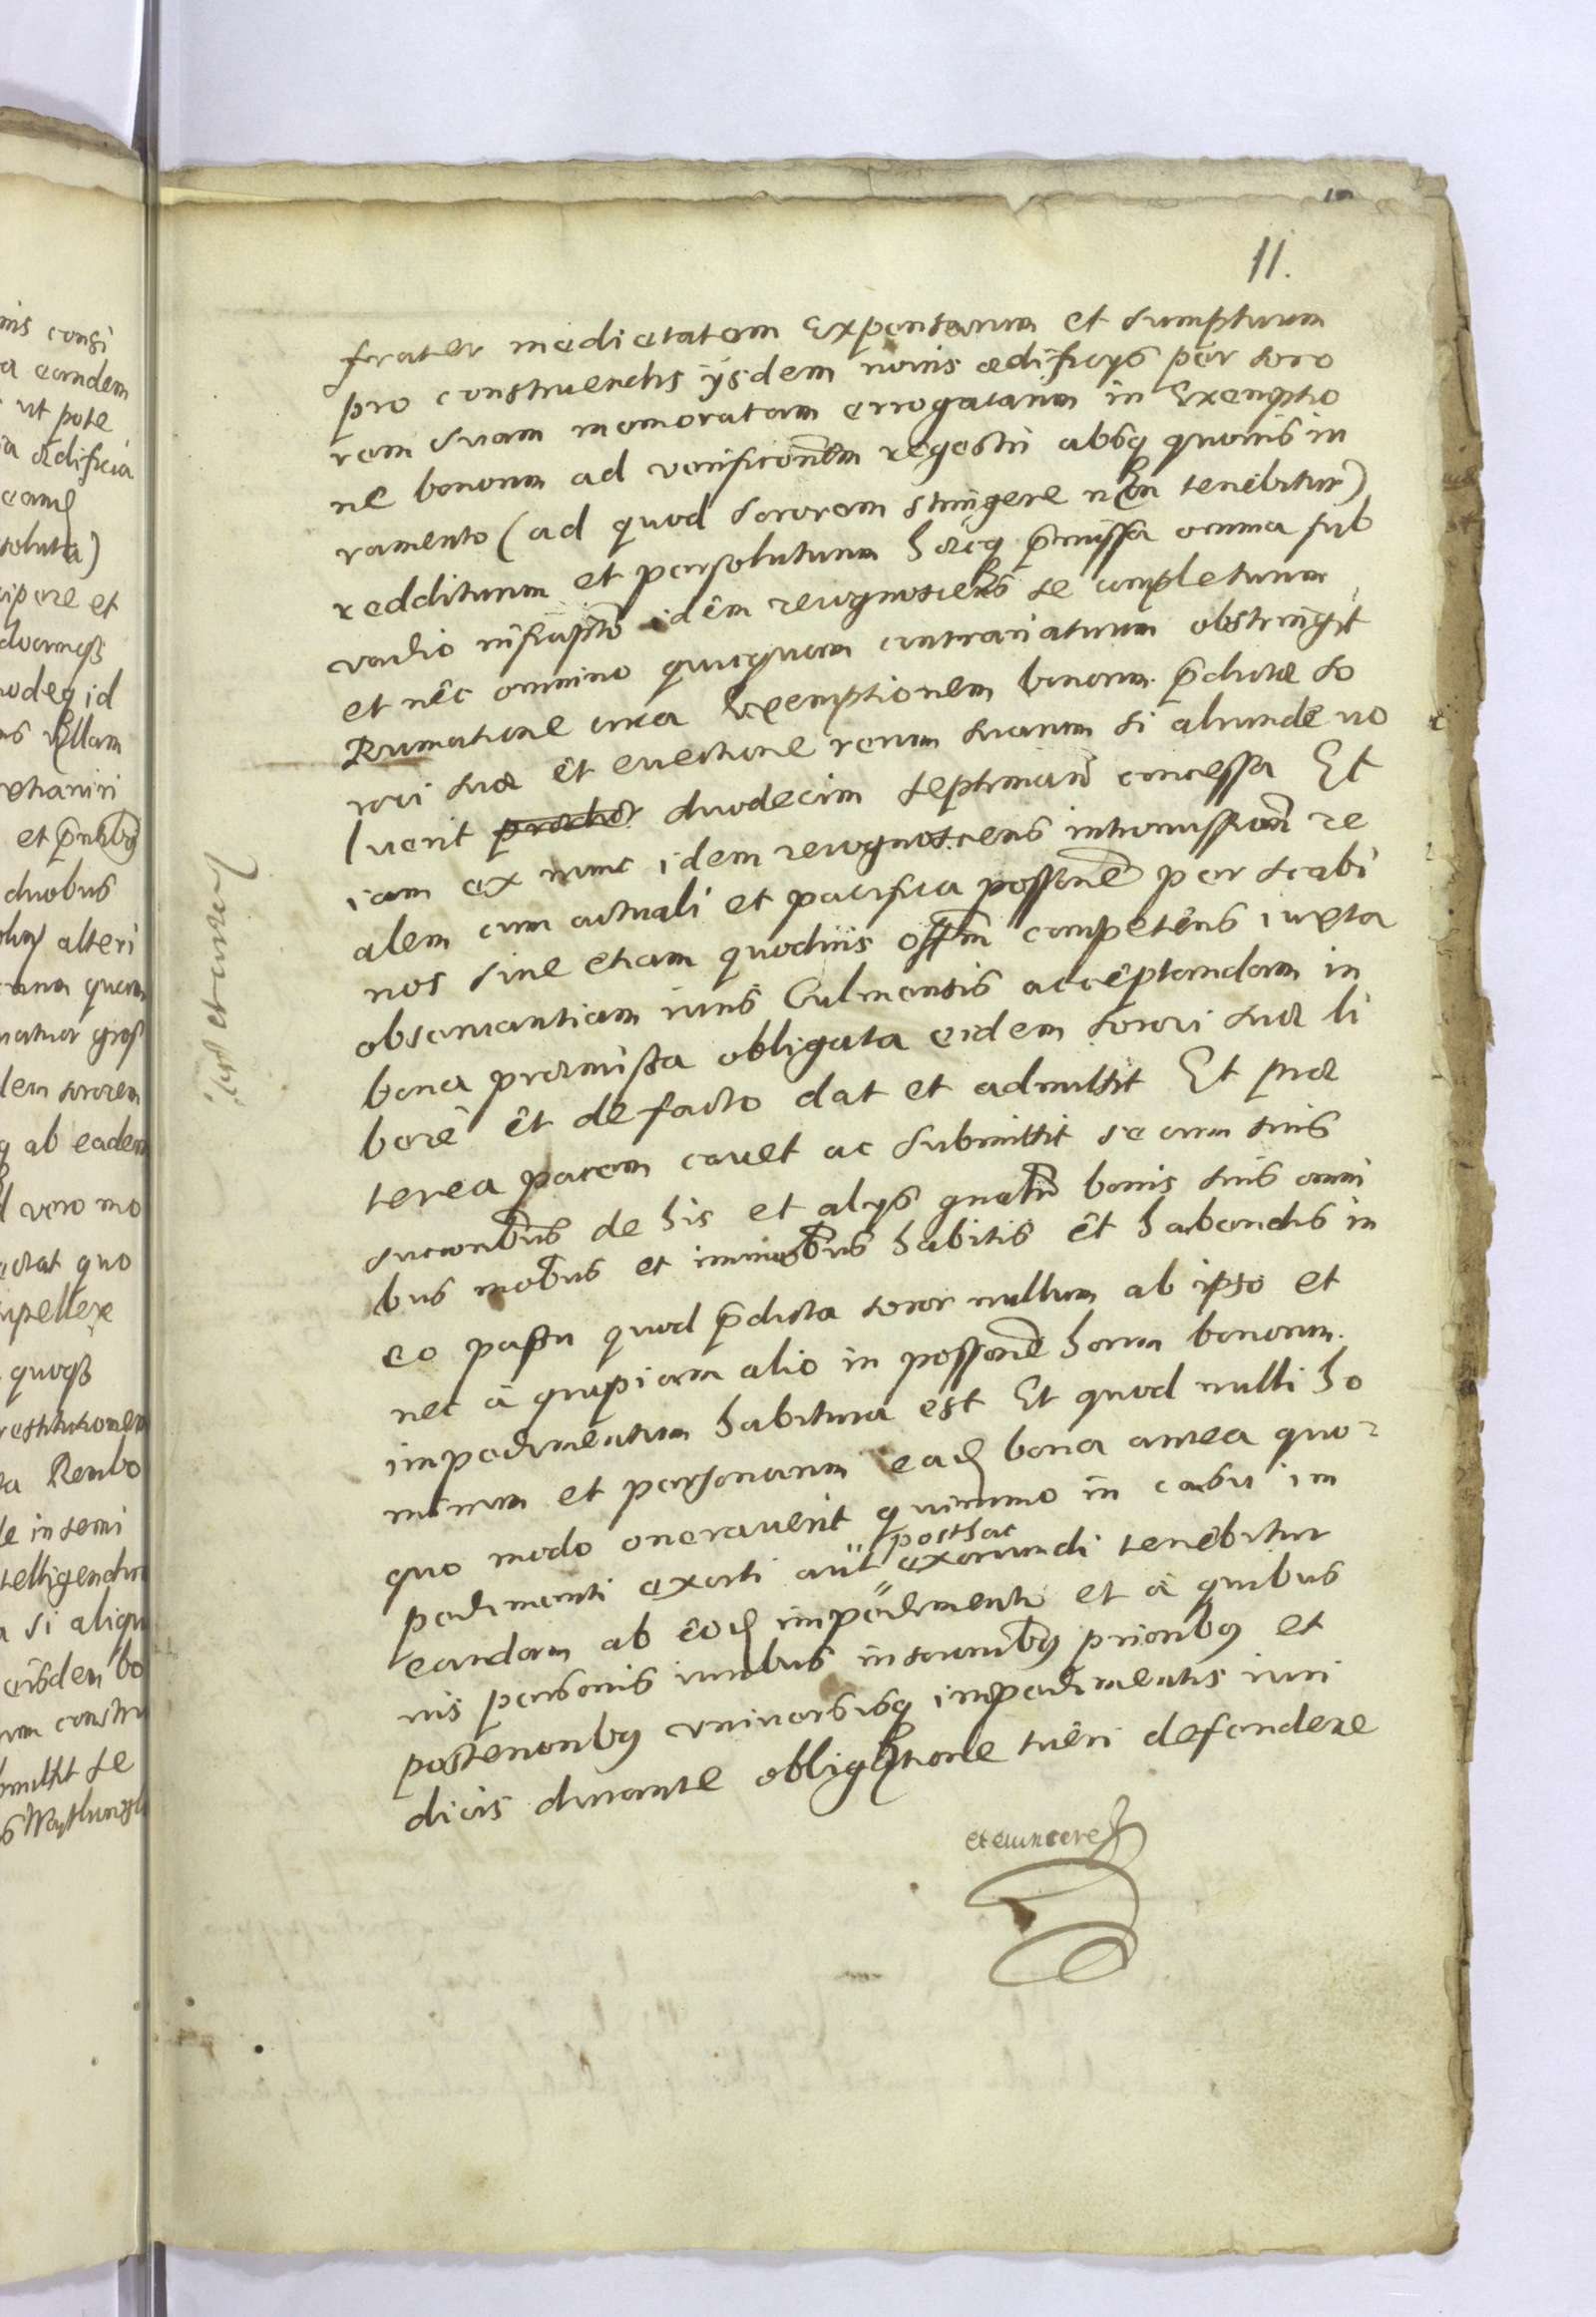 11.
frater medietatem Expensarum et sumptuum
pro construendis ijsdem nouis ædificijs per soro
rem suam memoratam errogatarum in Exemptio
ne bonorum ad verificationem regestri absq quouis iu
ramento (ad quod sororem stringere non tenebitur)
redditurum et persoluturum hæcq p̃missa omnia sub
vadio infrascripto idem recognoscens se completurum
et nec omnino quicquam contrariaturum obstringit
Rumatione circa Exemptionem bonorum p̃dictæ so
rori suæ et euectione rerum suarum si aliunde uo
luerit duodecim septimanis concessa Et
iam ex nunc idem recognoscens intromissionem re
alem cum actuali et pacifica possessione per scabi
nos siue etiam quoduis offm competens iuxta
obseruantiam iuris Culmensis acceptandam in
bona præmissa obligata eidem sorori suæ li
bere et de facto dat et admittit Et præ
terea pacem cauet ac submittit se cum suis
succoribus de his et alijs gnalir bonis suis omni
bus mobus et immobus habitis et habendis in
eo passu quod p̃dicta soror nullum ab ipso et
nec à quopiam alio in possione horum bonorum
impedimentum habitura est Et quod nulli ho
minum et personarum ead bona antea quo-
quo modo onerauerit quinimo in casu im
pedimenti exorti aut posthac exoriundi tenebitur
eandem ab eod impedimento et à quibus
uis personis iuribus inscrionibq prioribq et
posterioribq vniuersisq impedimentis iuri
dicis durante obligatione tueri defendere
et euincere